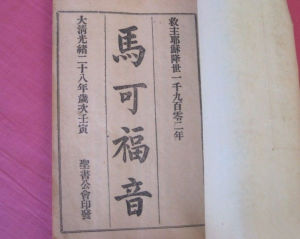 救主耶穌降世一千九百零二年
馬可福音
大清光緒二十八年歲次壬寅
聖書公會印發